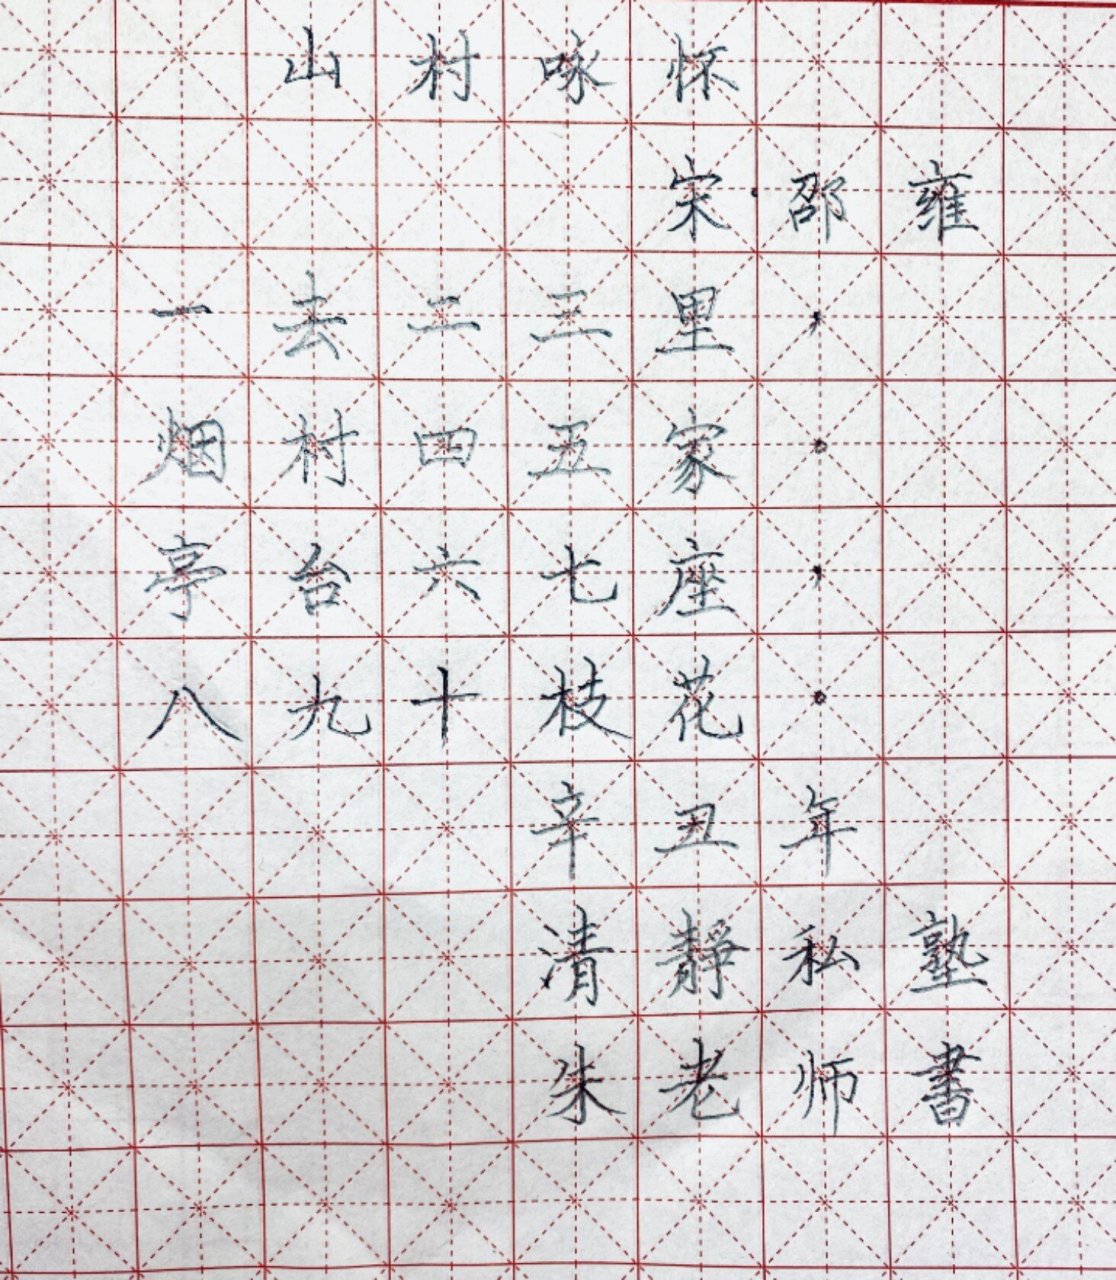 山村咏怀
宋·邵雍
一去二三里，
烟村四五家。
亭台六七座，
八九十枝花。
辛丑年
清静私塾
朱老师書